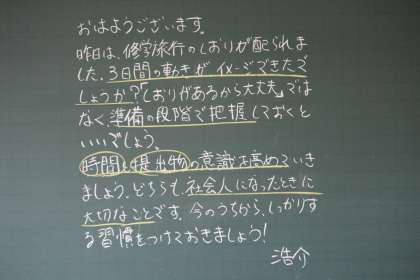 おはようございます。
昨日は、修学旅行のしおりが配られま
した。3日間の動きがイメージできたで
しょうか?「しおりがあるから大丈夫」では
なく準備の段階で把握しておくと
いいでしょう。
時間と提出物の意識を高めていき
ましょう。どちらも、社会人になったときに
大切なことです。今のうちから、しっかりす
る習慣をつけておきましょう!
浩介